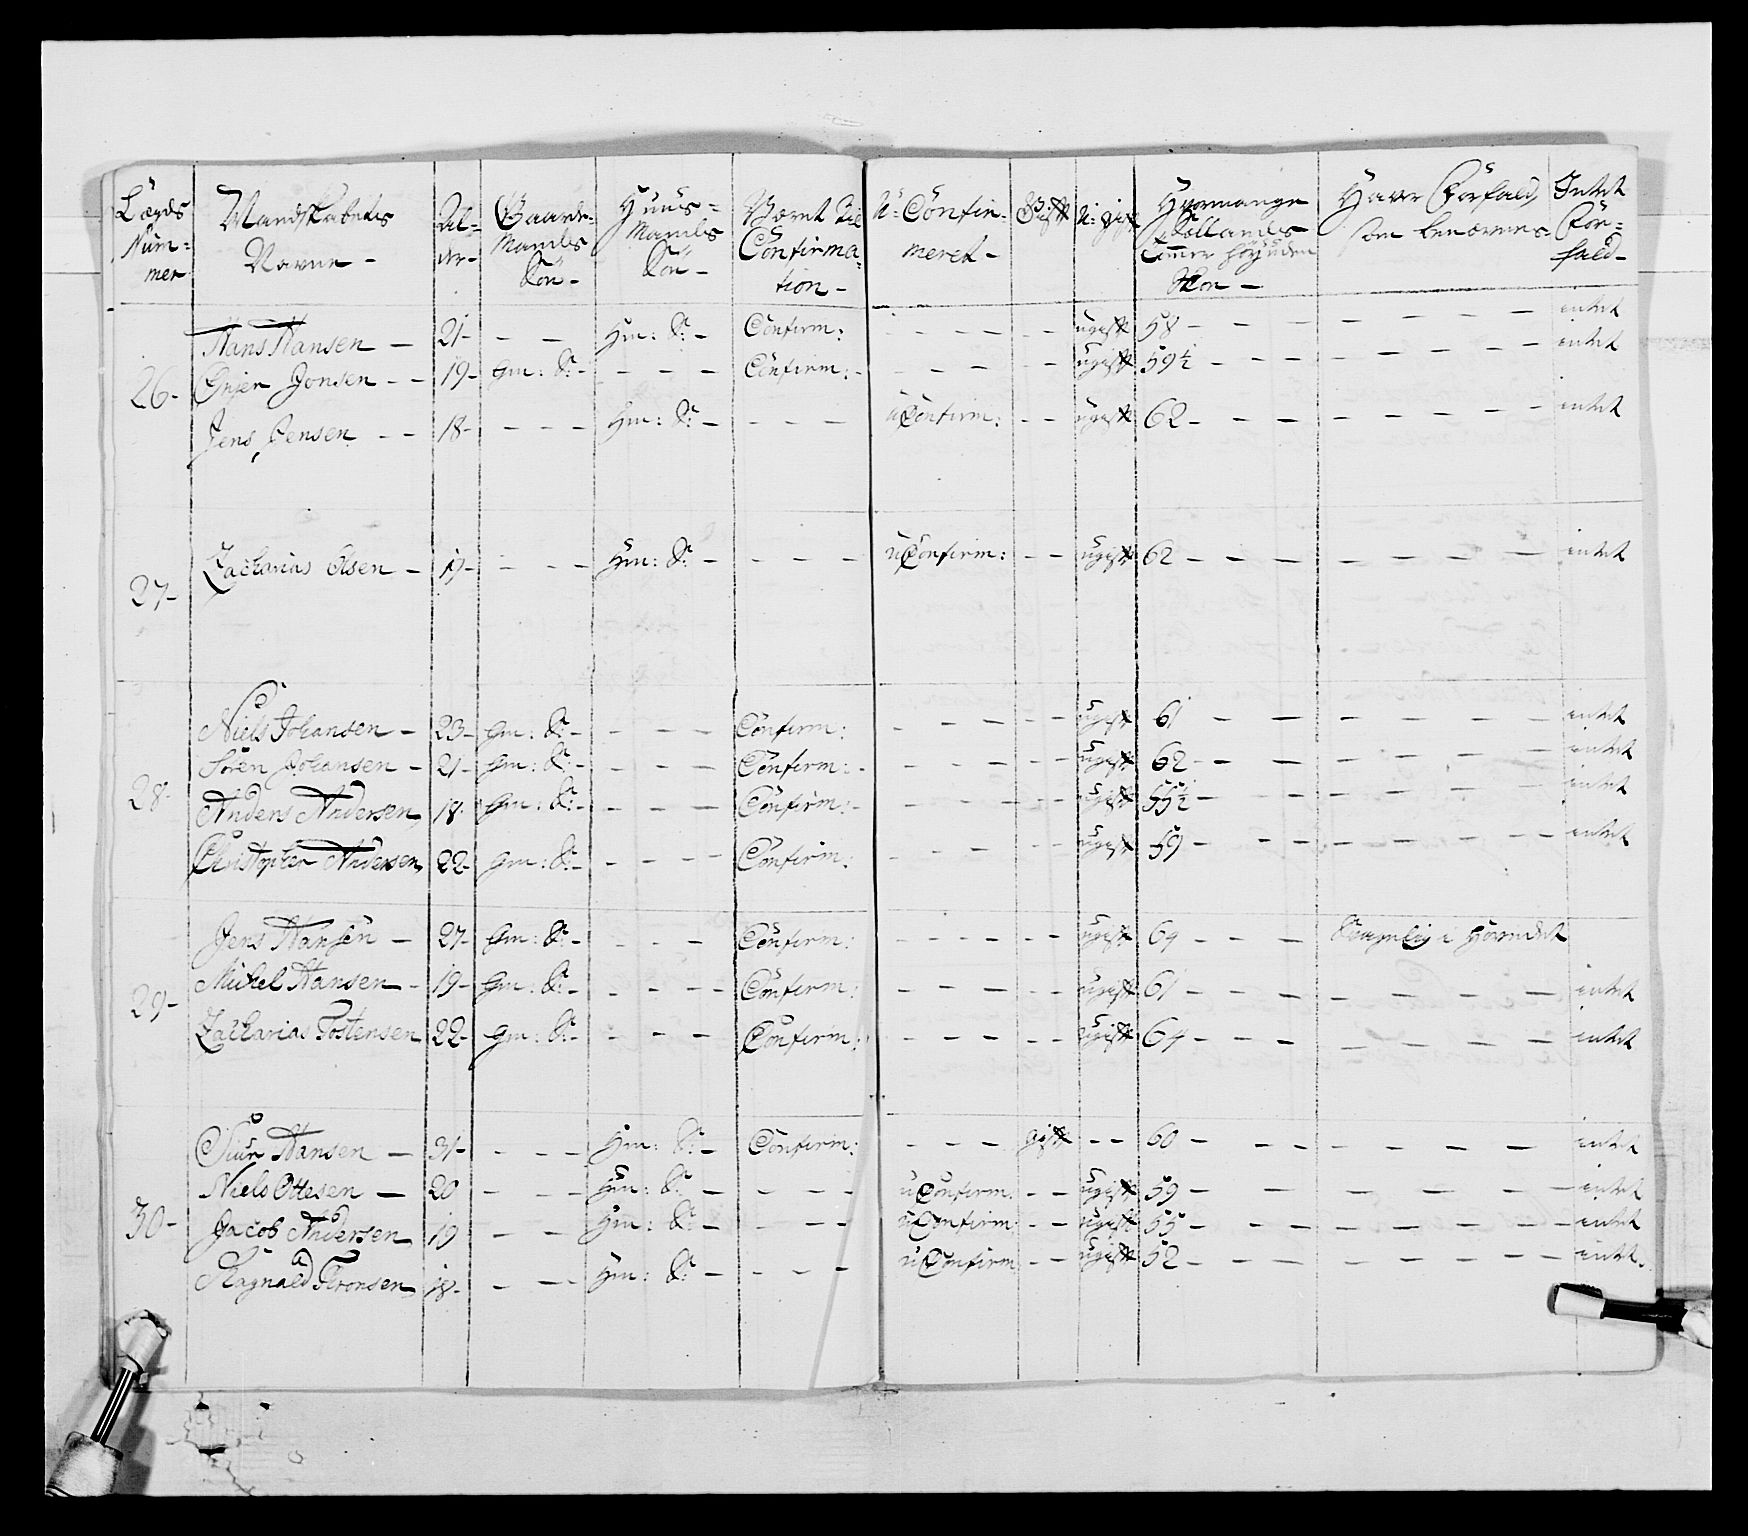 Lægds Num- mer
Mandskabets Navne -
Al- der-
Gaard- Mands Sön -
Huus- Mands Sön -
Været til Confirma- tion -
U-Confir- meret -
Gift
U: gift
Hvormange Sellands Tommer höy uden Skoe -
Haver Forfald, som benævnes-
Intet For- fald-
26-
Hans Hansen - 21- - - Hm: S: - Confirm: - - - - - - ugift 58 - - - - - - - intet
Jonsen - - 19- Gm: S: - - - - Confirm: - - - - - - ugift 59½ - - - - - - - intet
Jens Jensen - - 18- - - - Hm: S: - - - - uConfirm: - - ugift 62 - - - - - - - intet
27-
Zacharias Olsen - 19- - - - Hm: S: - - - - uConfirm: - - ugift 62 - - - - - - - intet
28-
Niels Johansen - 23- Gm: S: - - - - Confirm: - - - - - ugift 61 - - - - - - - intet
Sören Johansen - 21- Gm: S: - - - - Confirm: - - - - - - ugift 62 - - - - - - - intet
Anders Andersen 18- Gm: S: - - - - Confirm: - - - - - - ugift 55½ - - - - - - - intet
Christopher Andersen, 22- Gm: S: - - - - - Confirm: - - - - - - ugift 59 - - - - - - - intet
29-
Jens Hansen - 27- Gm: S: - - - - Confirm: - - - - - - ugift 64 - - - Svagelig i Hovedet
Michel Hansen - 19- Gm: S: - - - - - Confirm: - - - - - - ugift 61 - - - - - - - intet
Zacharias Tostensen 22- Gm: S: - - - - Confirm: - - - - - - ugift 64 - - - - - - - intet
30-
Siur Hansen - 31- - - - Hm: S: - Confirm: - - - gift - - 60 - - - - - - - intet
Niels Ottesen - 20 - - - Hm: S: - - - - uConfirm: - - ugift 59 - - - - - - - intet
Jacob Andersen 19 - - Hm: S: - - - - uConfirm - - ugift 55 - - - - - - - intet
Ragnald Thronsen 18- - - - Hm: S: - - - - uConfirm - - ugift 52 - - - - - - - intet.